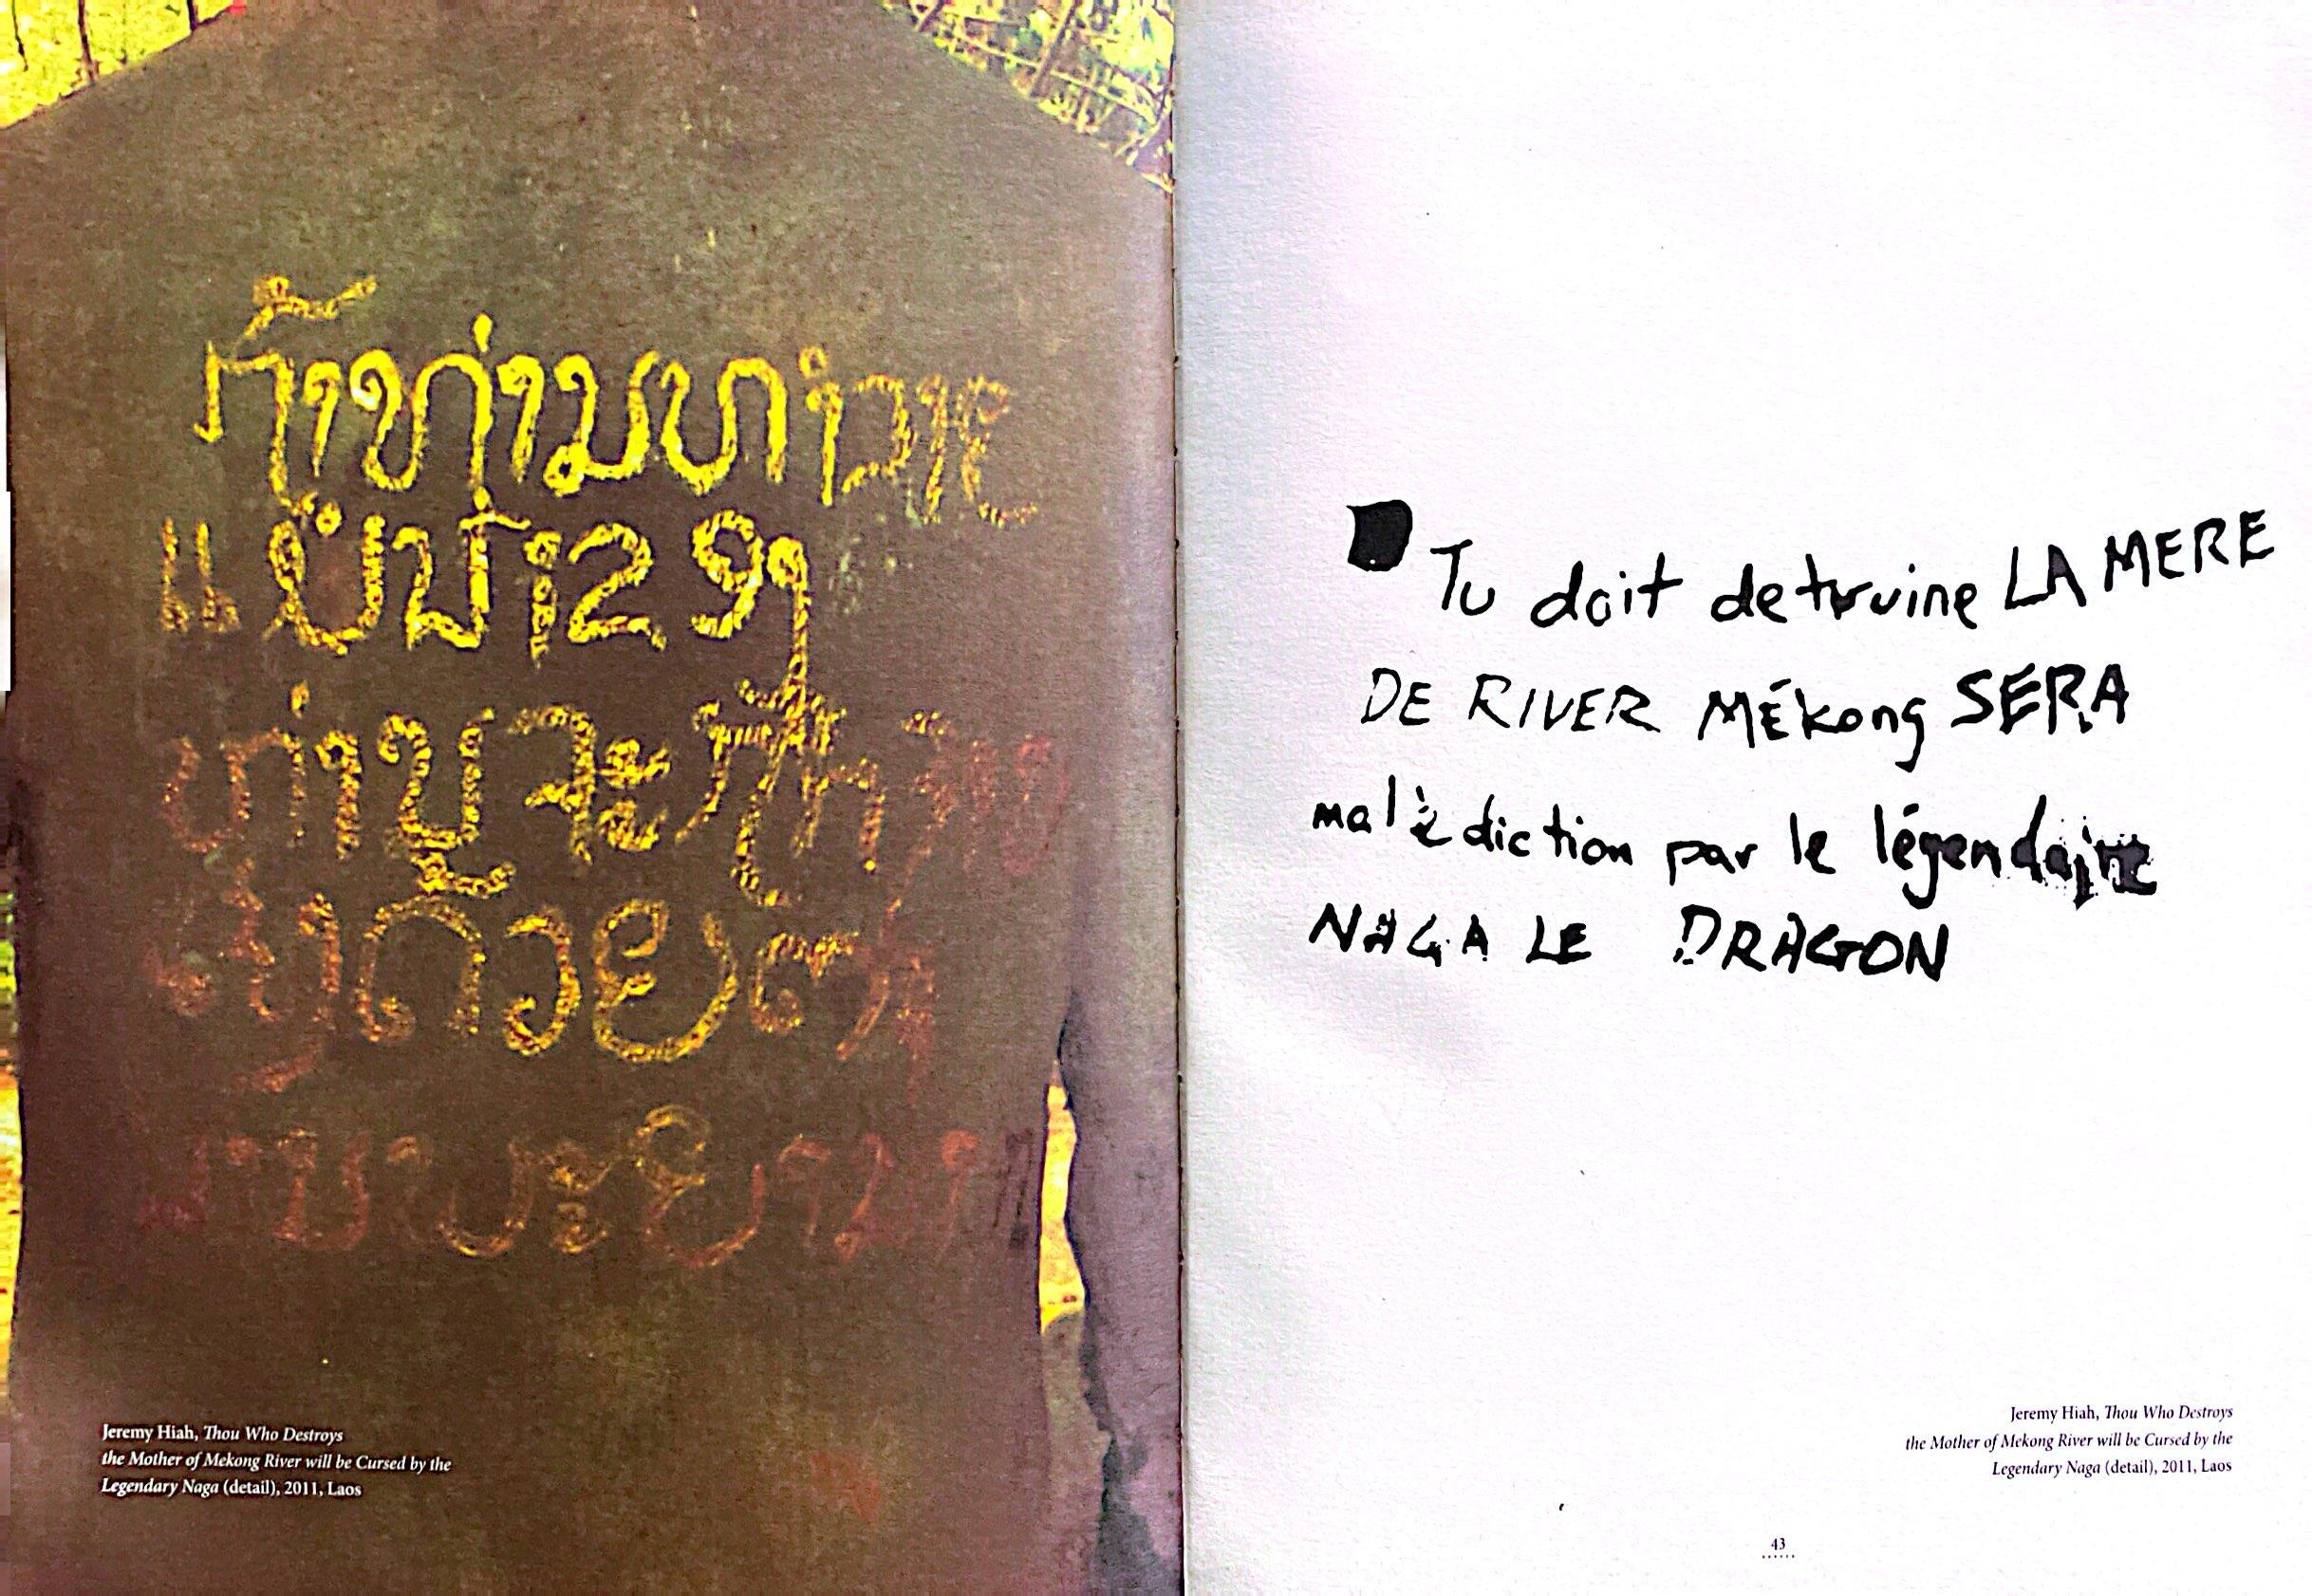 ຖ້າທ່ານທຳລາຍ
ທ່ານຈະຖືກ
ດວຍ
ນານພະຍານາກ
Jeremy Hiah, Thou Who Destroys
the Mother of Mekong River will be Cursed by the
Legendary Naga (detail), 2011, Laos
Tu doit detruire LA MERE
DE RIVER MÉKong SERA
malèdiction par le légendaire
NAGA LE DRAGON
Jeremy Hiah, Thou Who Destroys
the Mother of Mekong River will be Cursed by the
Legendary Naga (detail), 2011, Laos
43